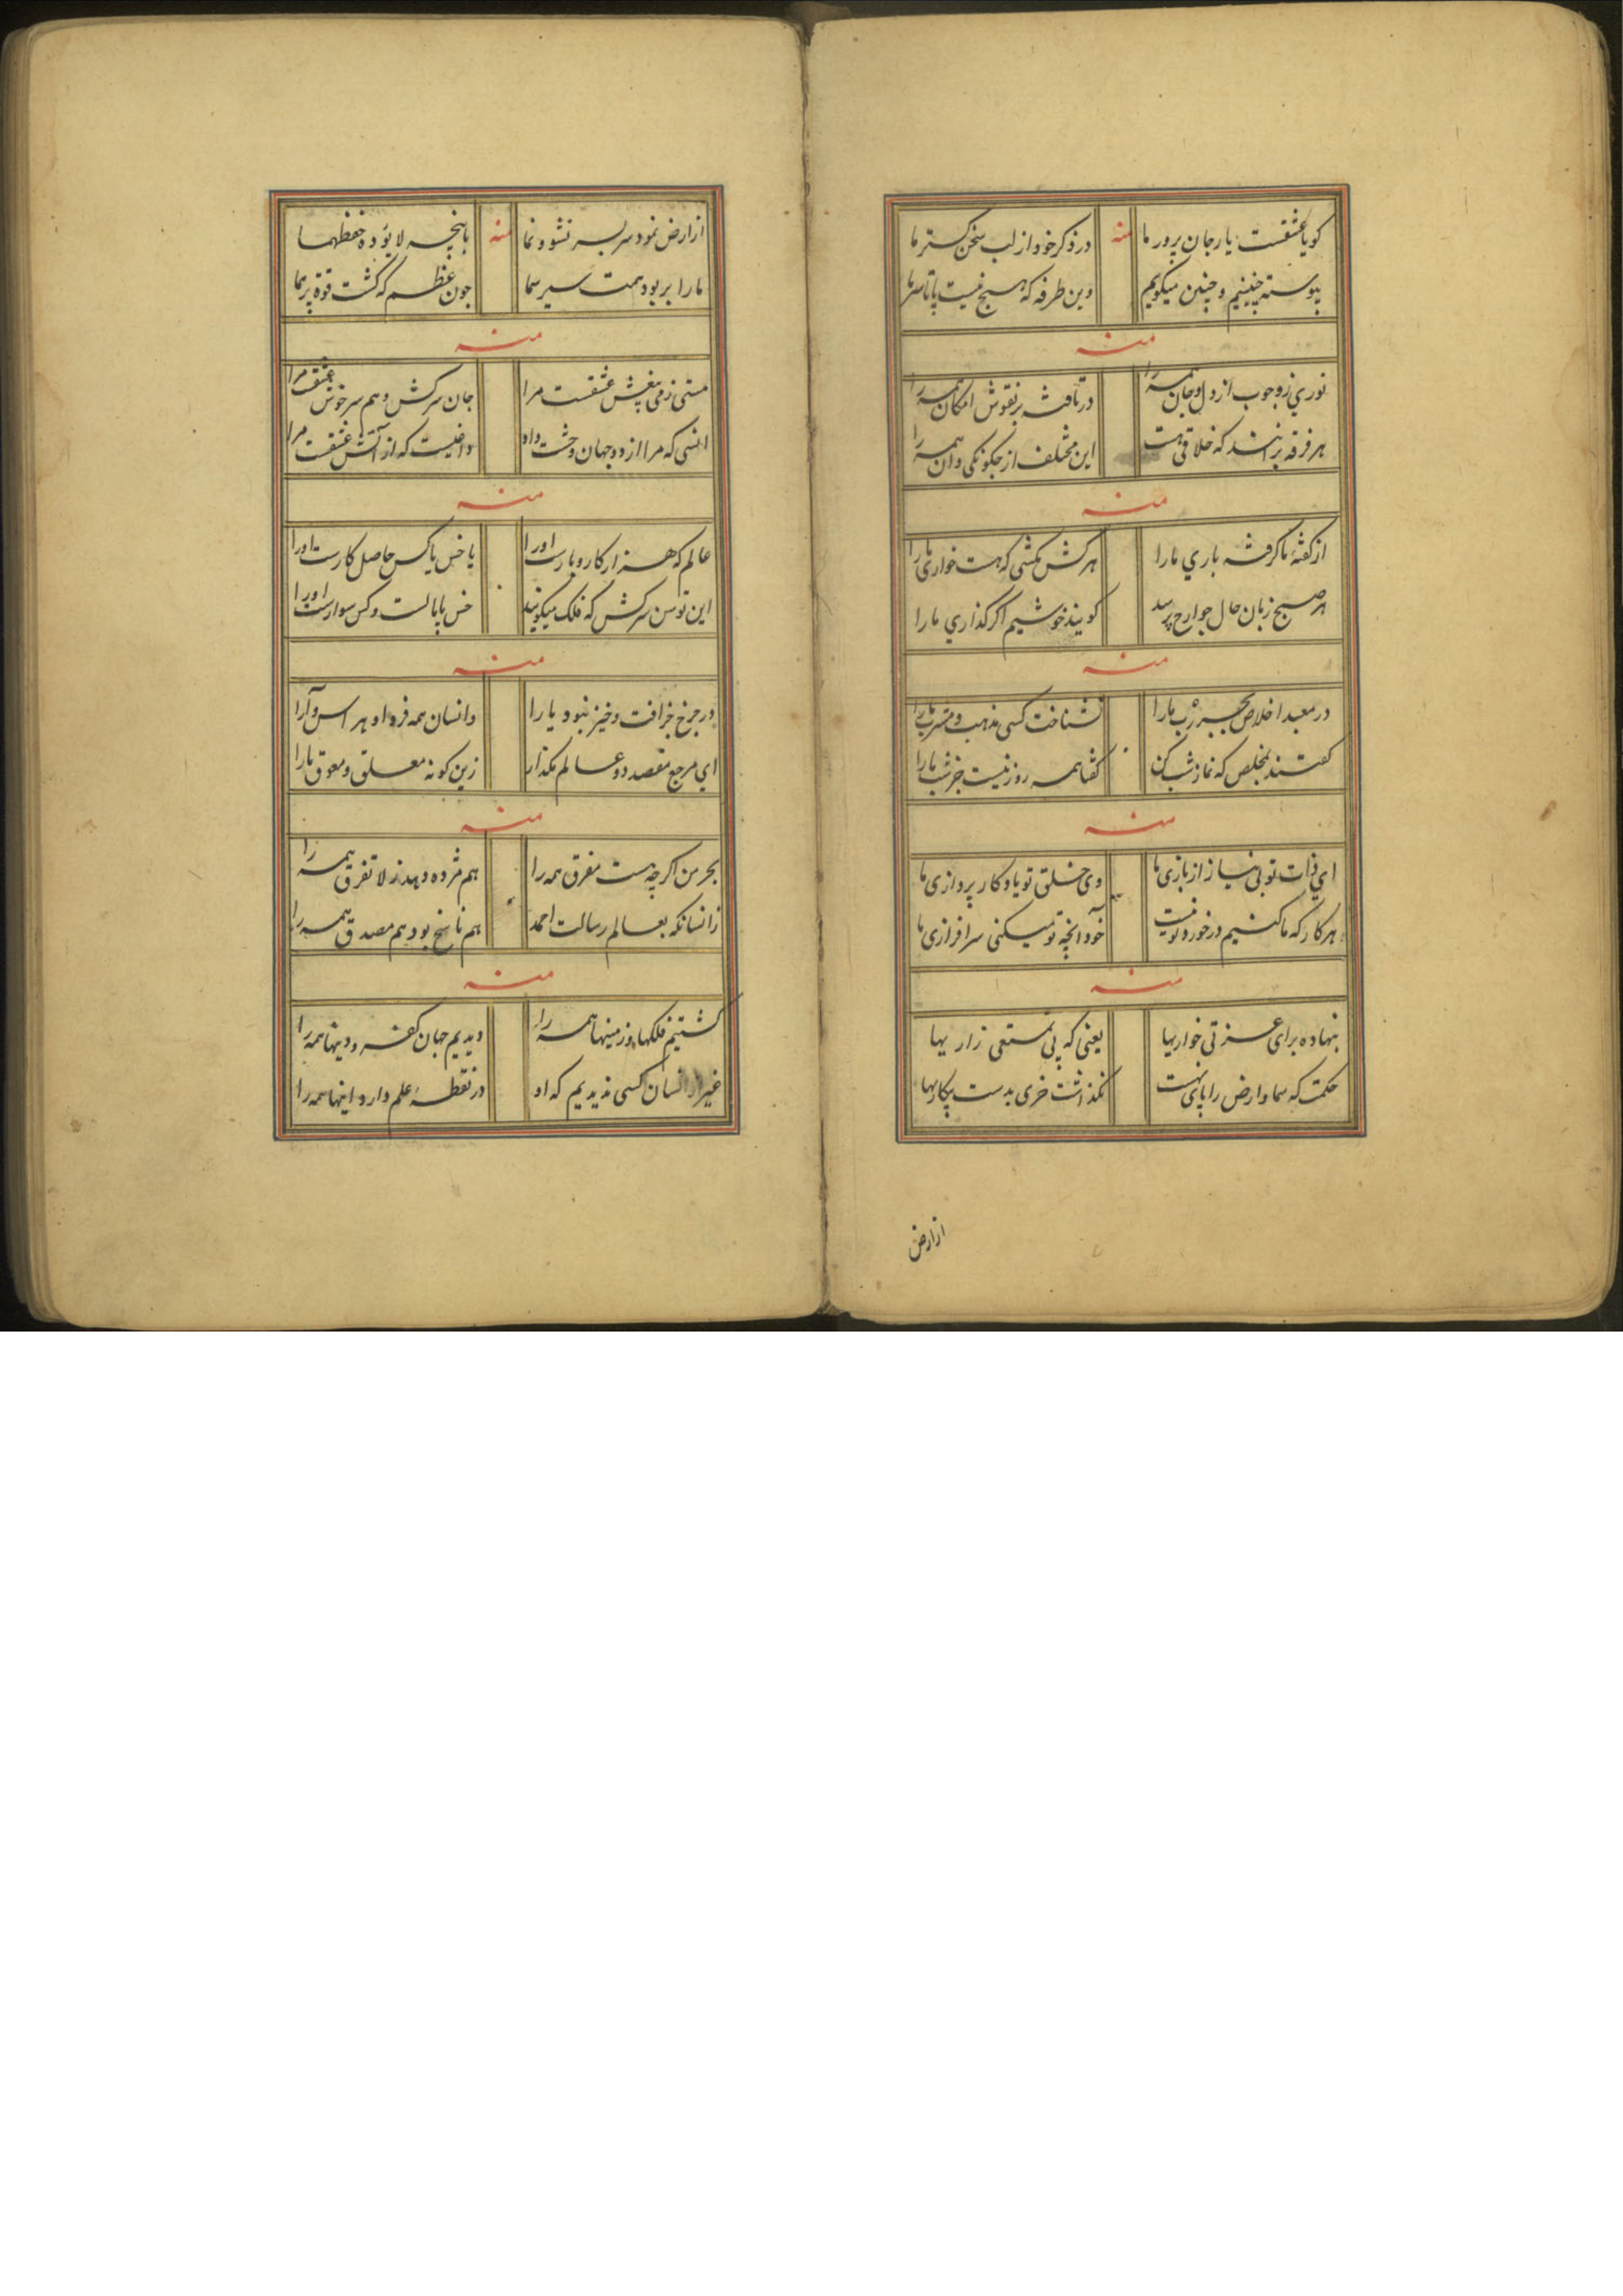 کویا عشقست یا رجان پرور ما منه در ذکر خود از لب سخن کستر ما
پیوسته چنینیم و چنین میکوییم وین طرفه که هیچ نیست پا تا سر ما
منه
نوري ز وجوب از دل و جان همه را در تافته بر نقوش امکان همه را
هر فرقه برانند که خلاقی هست این مختلف از چکونکی وان همه را
منه
از کفتهٔ ما کرفته باري ما را هر کش مکشی که هست خواری ما را
هر صبح زبان حال جوارح پرسد کویند خوشیم اکر کذاري ما را
منه
در معبد اخلاص بجبر رب ما را نشناخت کسی مذهب و مشرب ما را
کفتند بمخلص که نماز شب کن کفتا همه روز نیست جز شب ما را
منه
اي ذات تو بی نیاز از بازی ما وی خلق تو یاد کار پردازی ما
هر کار که ما کنیم در خورد تو نیست خود آنچه تو میکنی سرافرازی ما
منه
بنهاده برای عزتی خواریها یعنی که پی تمتعی زاریها
حکمت که سما و ارض را پای نهست نکذاشت خری بدست بیکاریها
از ارض
از ارض نمود سر بسر نشو و نما منه با پنجه لا یؤده حفظهما
ما را بربود همت سیر سما چون عظم که کشت قوة پر نما
منه
مستی ز می بیغش عشقست مرا جان سرکش و هم سرخوش عشقست مرا
انسی که مرا از دو جهان وحشت داد داغیست که از آتش عشقست مرا
منه
عالم که هزار کار و بارست او را یا خس یا کس حاصل کارست او را
این توسن سرکش که فلک میکویند خس پامالست و کس سوارست او را
منه
در چرخ خرافت و خیز نبود یارا وانسان همه فرد او هر اس و آرا
اي مرجع مقصد دو عالم مکذار زین کونه معلق و معوق ما را
منه
بحر من اکرچه هست مفرق همه را هم مژده دهد ز لا تفرق همه را
زانسانکه بعالم رسالت احمد هم ناسخ بود هم مصدق همه را
منه
کشتیم فلکها و زمینها همه را دیدیم جهان کفر و دینها همه را
غیر از انسان کسی ندیدیم که او در نقطهٔ علم دارد اینها همه را